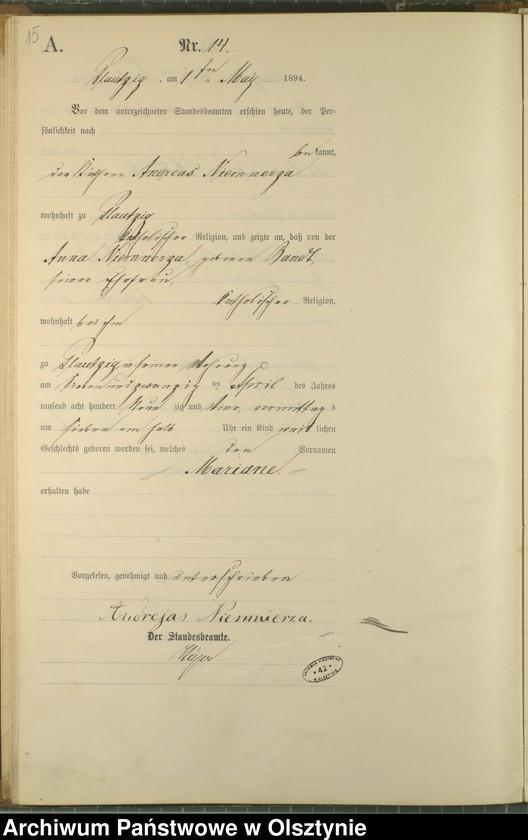 15
A.
Nr. 14.
Plautzig, am 1ten May 1894.
Vor dem unterzeichneten Standesbeamten erschien heute, der Per-
sönlichkeit nach
bekannt,
der Andreas Niemnerza
wohnhaft zu Plautzig
katholischer Religion, und zeigte an, daß von der
Anna Niemnerza, geborene Bandt,
seiner Ehefrau,
katholischer Religion,
wohnhaft bei ihm
zu Plautzig in seiner Wohnung
am siebenundzwanzig ten April des Jahres
tausend acht hundert Neun zig und vier, vormittag s
um sieben ein halb Uhr ein Kind weib lichen
Geschlechts geboren worden sei, welches den Vornamen
Mariane
erhalten habe
Vorgelesen, genehmigt und unterschrieben
Andrejas Niemwierza.
Der Standesbeamte.
42
Archiwum Państwowe w Olsztynie